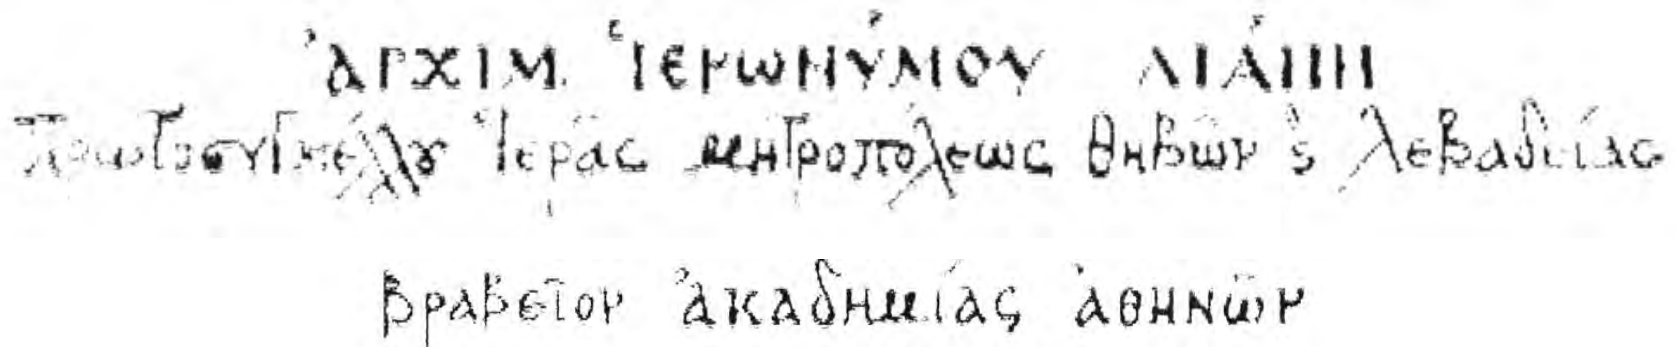 ἈΡΧΙΜ. ἹΕΡΩΝΎΜΟΥ ΛΙΆΠΗ
Πρωτοσυγκέλλου Ἱερᾶς μητροπόλεως Θηβῶν ϗ Λεβαδείας
Βραβεῖον Ἀκαδημίας Ἀθηνῶν